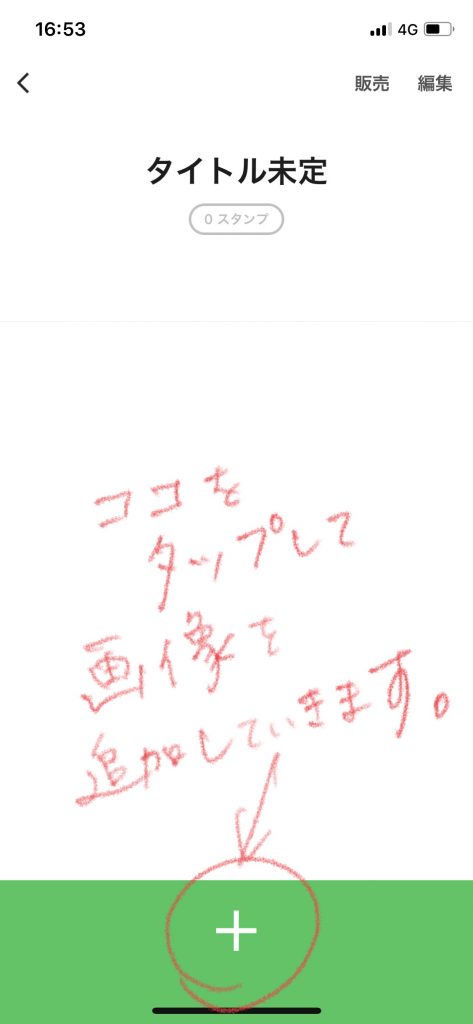 16:53 4G
販売 編集
タイトル未定
0 スタンプ
ココを
タップして
画像を
追加していきます。